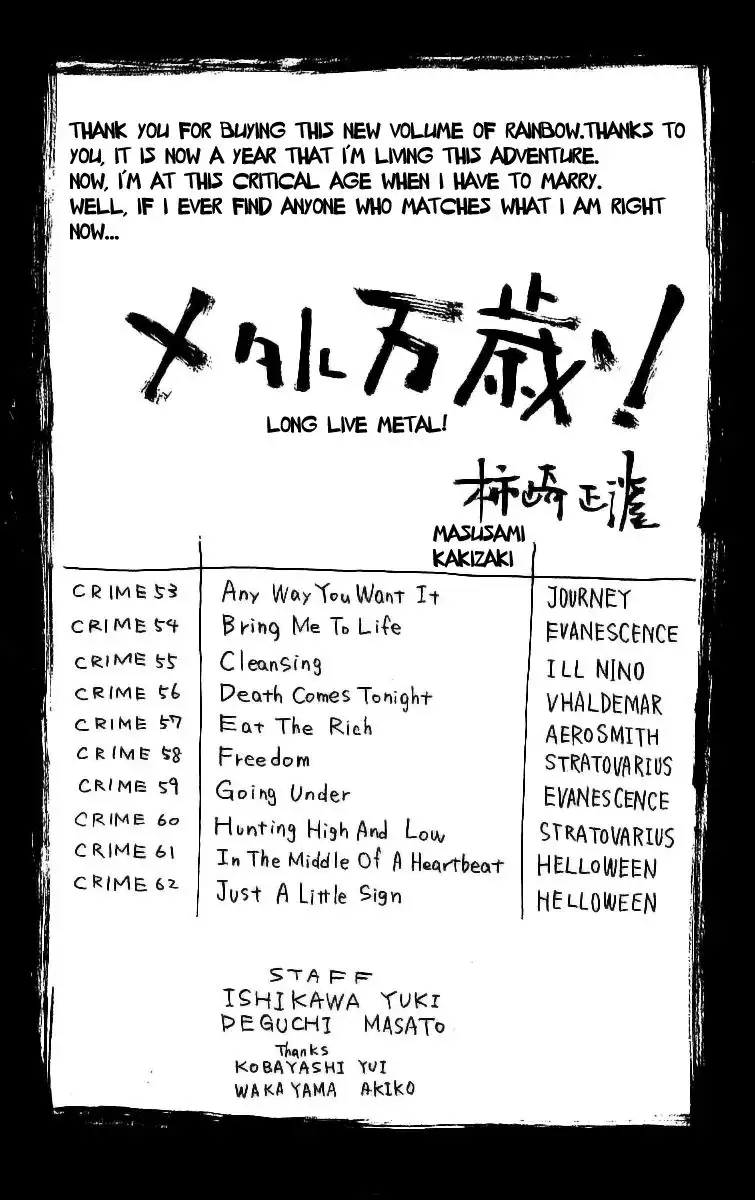 THANK YOU FOR BUYING THIS NEW VOLUME OF RAINBOW.THANKS TO
YOU, IT IS NOW A YEAR THAT I'M LIVING THIS ADVENTURE.
NOW, I'M AT THIS CRITICAL AGE WHEN I HAVE TO MARRY.
WELL, IF I EVER FIND ANYONE WHO MATCHES WHAT I AM RIGHT
NOW...
メタル万歳ッ!
LONG LIVE METAL!
柿崎正澄
MASUSAMI
KAKIZAKI
CRIME 53 Any Way You Want It JOURNEY
CRIME 54 Bring Me To Life EVANESCENCE
CRIME 55 Cleansing ILL NINO
CRIME 56 Death Comes Tonight VHALDEMAR
CRIME 57 Eat The Rich AEROSMITH
CRIME 58 Freedom STRATOVARIUS
CRIME 59 Going Under EVANESCENCE
CRIME 60 Hunting High And Low STRATOVARIUS
CRIME 61 In The Middle Of A Heartbeat HELLOWEEN
CRIME 62 Just A Little Sign HELLOWEEN
STAFF
ISHIKAWA YUKI
DEGUCHI MASATO
Thanks
KOBAYASHI YUI
WAKAYAMA AKIKO